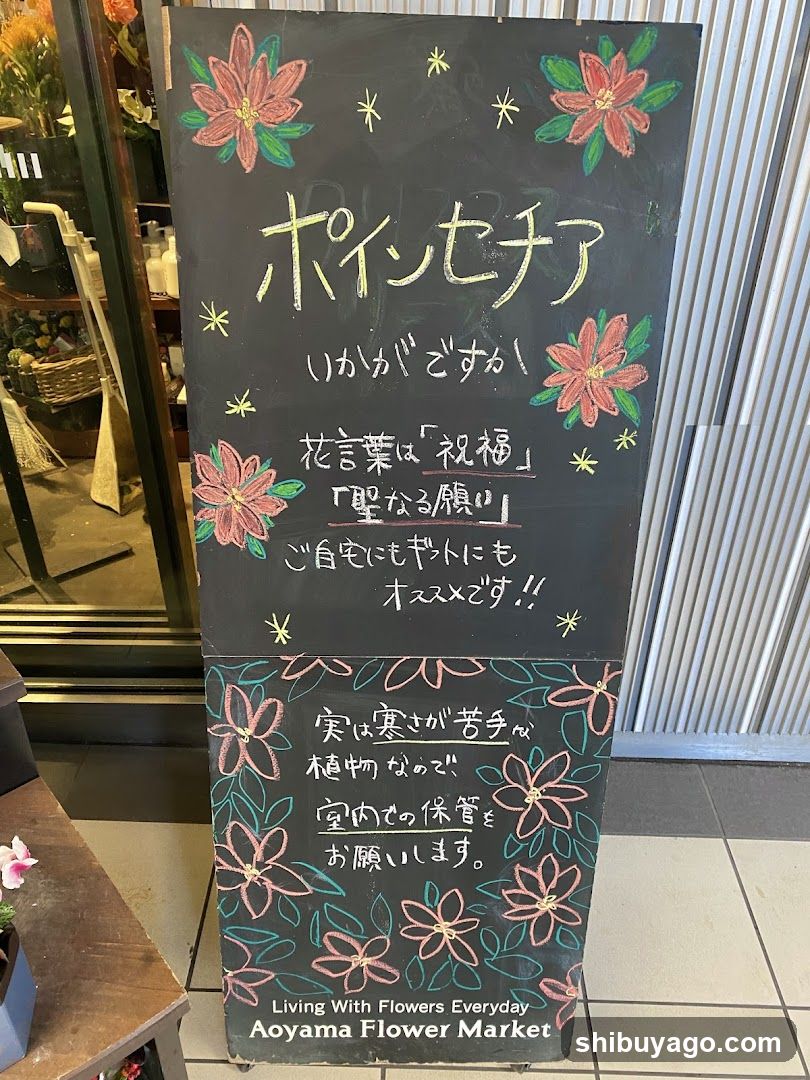 ポインセチア
いかがですか
花言葉は「祝福」
「聖なる願い」
ご自宅にもギフトにも
オススメです!!
実は寒さが苦手な
植物なので、
室内での保管を
お願いします。
Living With Flowers Everyday
Aoyama Flower Market
shibuyago.com